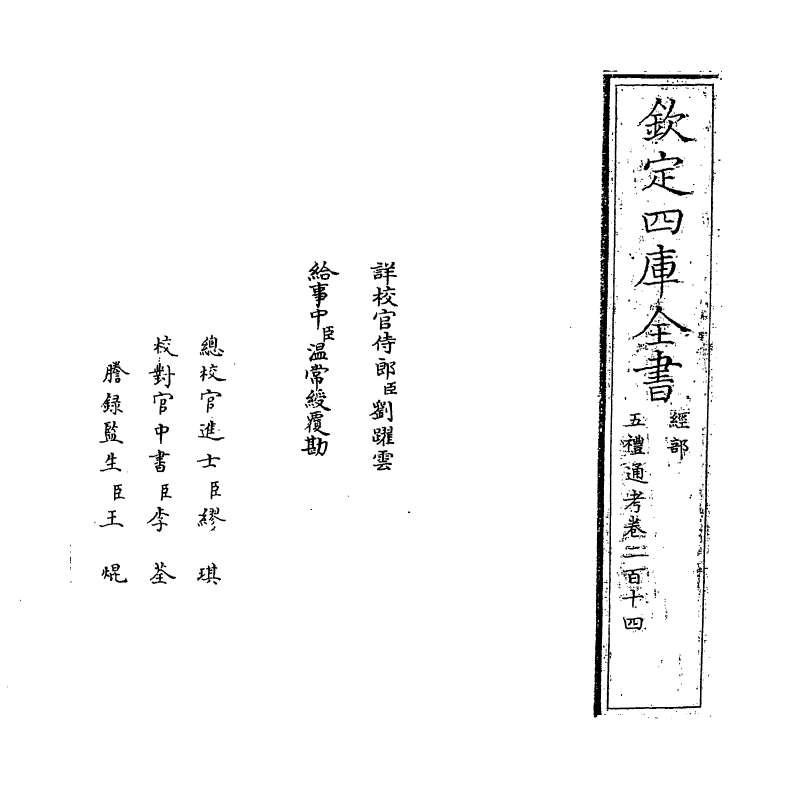 欽定四庫全書
經部
五禮通考卷二百十四
詳校官侍郎臣劉躍雲
給事中臣温常綬覆勘
總校官進士臣繆琪
校對官中書臣李荃
謄録監生臣王焜